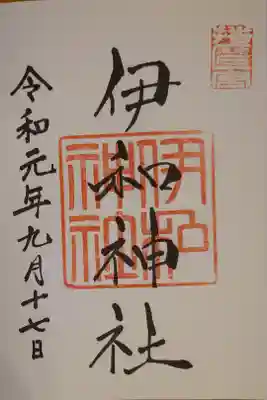 伊和神社
令和元年九月十七日
伊和
神社